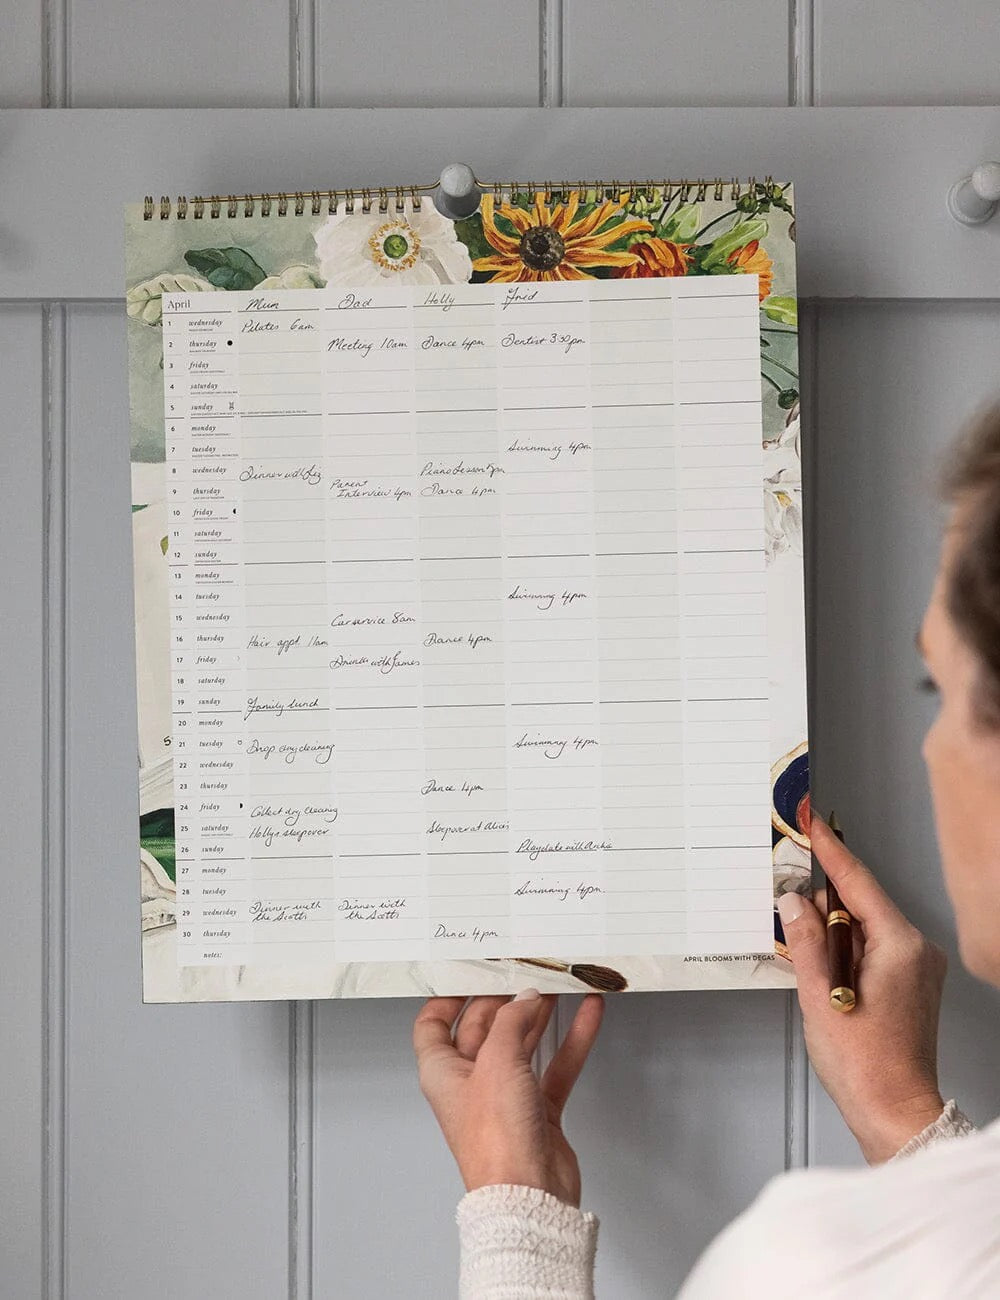 April Mum Dad Holly Fred
1 wednesday Pilates 6am
2 thursday Meeting 10am Dance 4pm Dentist 3:30pm
3 friday
4 saturday
5 sunday
6 monday
7 tuesday Swimming 4pm
8 wednesday Dinner with Liz Piano Lesson
9 thursday Parent Interview 4pm Dance 4pm
10 friday
11 saturday
12 sunday
13 monday
14 tuesday Swimming 4pm
15 wednesday Car service 8am
16 thursday Hair appt. 11am Dance 4pm
17 friday Drinks with James
18 saturday
19 sunday Family lunch
20 monday
21 tuesday Drop dry cleaning Swimming 4pm
22 wednesday
23 thursday Dance 4pm
24 friday Collect dry cleaning
25 saturday Hollys sleepover Sleepover at
26 sunday Playdate with
27 monday
28 tuesday Swimming 4pm.
29 wednesday Dinner with the Scotts Dinner with the Scotts
30 thursday Dance 4pm
notes:
APRIL BLOOMS WITH DEGAS